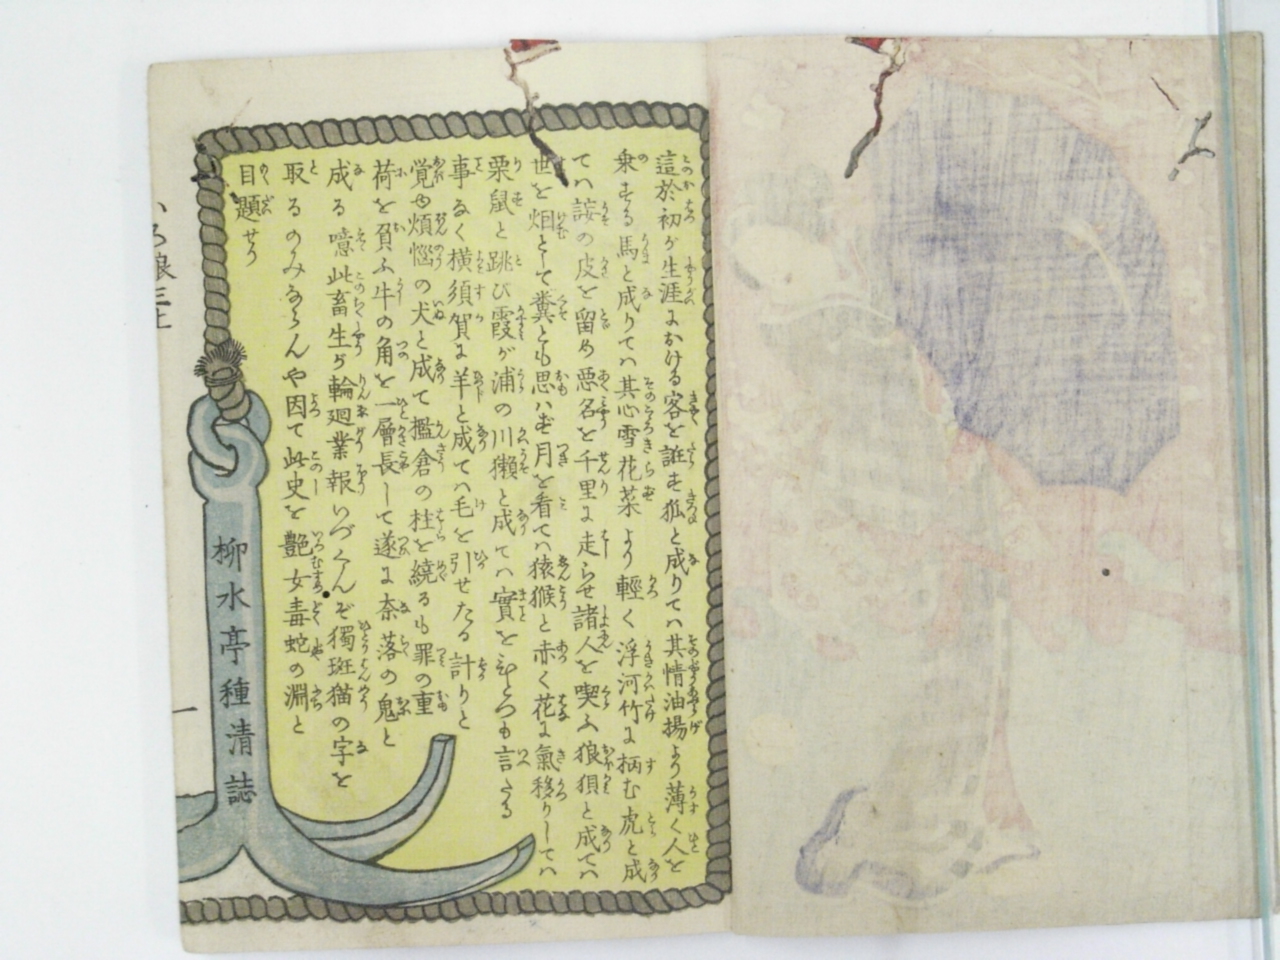 這於初が生涯にかける客を誑す狐と成りてハ其情油揚より薄く人を
乗する馬と成りてハ其心雪花菜より輕く浮河竹に栖む虎と成
てハ諺の皮を留め悪名を千里に走らせ諸人を喫ふ狼狽と成てハ
世を畑として糞とも思ハず月を看てハ猿猴と赤く花に氣移りしてハ
栗鼠と跳び霞が浦の川獺と成てハ實をひとつも言たる
事なく横須賀に羊と成てハ毛を引せたる計りと
覚ゆ煩悩の犬と成て檻倉の柱を繞るも罪の重
荷を負ふ牛の角を一層長して遂に奈落の鬼と
成る噫此畜生が輪廻業報いづくんぞ獨斑猫の字を
取るのみならんや因て此史を艶女毒蛇の淵と
目題せり
柳水亭種清誌
いろ娘三上
一